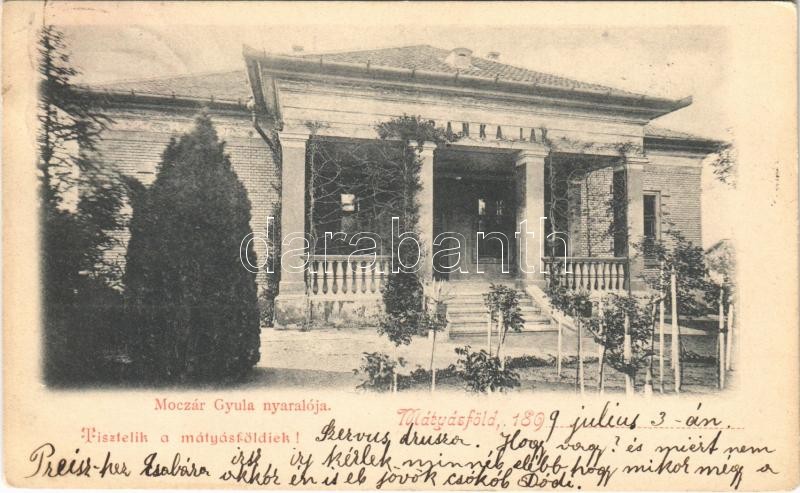 ANKA LAK
© darabanth.com
Moczár Gyula nyaralója.
Mátyásföld, 1899 július 3-án.
Tisztelik a mátyásföldiek!
Szervus druszа. Hogy vagy? és miért nem
irsz irj kérlek minnél előbb hogy mikor még a
okkor én is el jövök csókol Dodi.